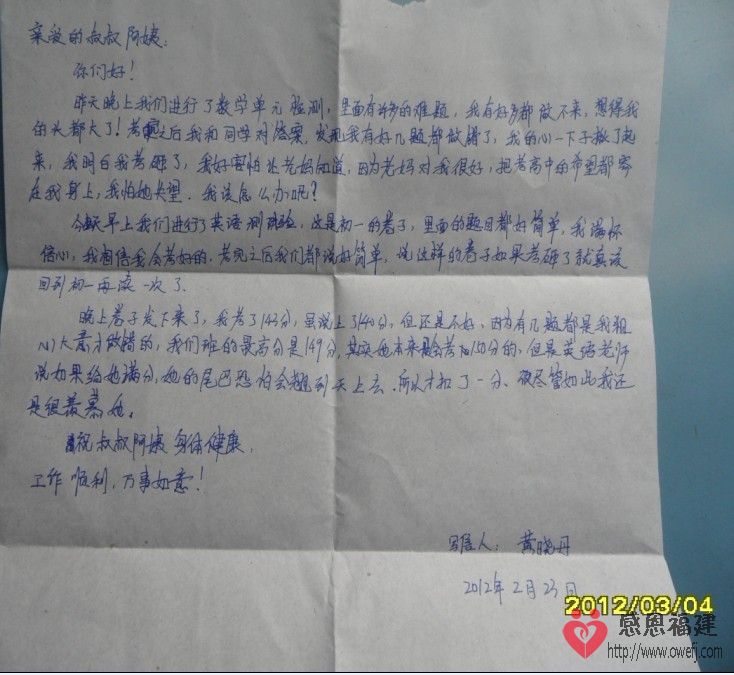 亲爱的叔叔阿姨:
你们好!
昨天晚上我们进行了数学单元检测,里面有许多的难题,我有好多都做不来,想得我
的头都大了!考完之后我和同学对答案,发现我有好几题都做错了,我的心一下子揪了起
来,我明白我考砸了,我好害怕让老妈知道,因为老妈对我很好,把考高中的希望都寄
在我身上,我怕她失望.我该怎么办呢?
今天早上我们进行了英语测验,这是初一的卷子,里面的题目都好简单,我满怀
信心,我相信我会考好的.考完之后我们都说好简单,说这样的卷子如果考砸了就真该
回到初一再读一次了.
晚上卷子发下来了,我考了143分,虽说上了140分,但还是不好,因为有几题都是我粗
心大意才做错的,我们班的最高分是149分,其实她本来是会考150分的,但是英语老师
说如果给她满分,她的尾巴恐怕会翘到天上去.所以才扣了一分、尽管如此我还
是很羡慕她。
祝叔叔阿姨身体健康,
工作顺利,万事如意!
写信人:黄晓丹
2012年2月23日
2012/03/04
感恩福建
http://www.owefj.com